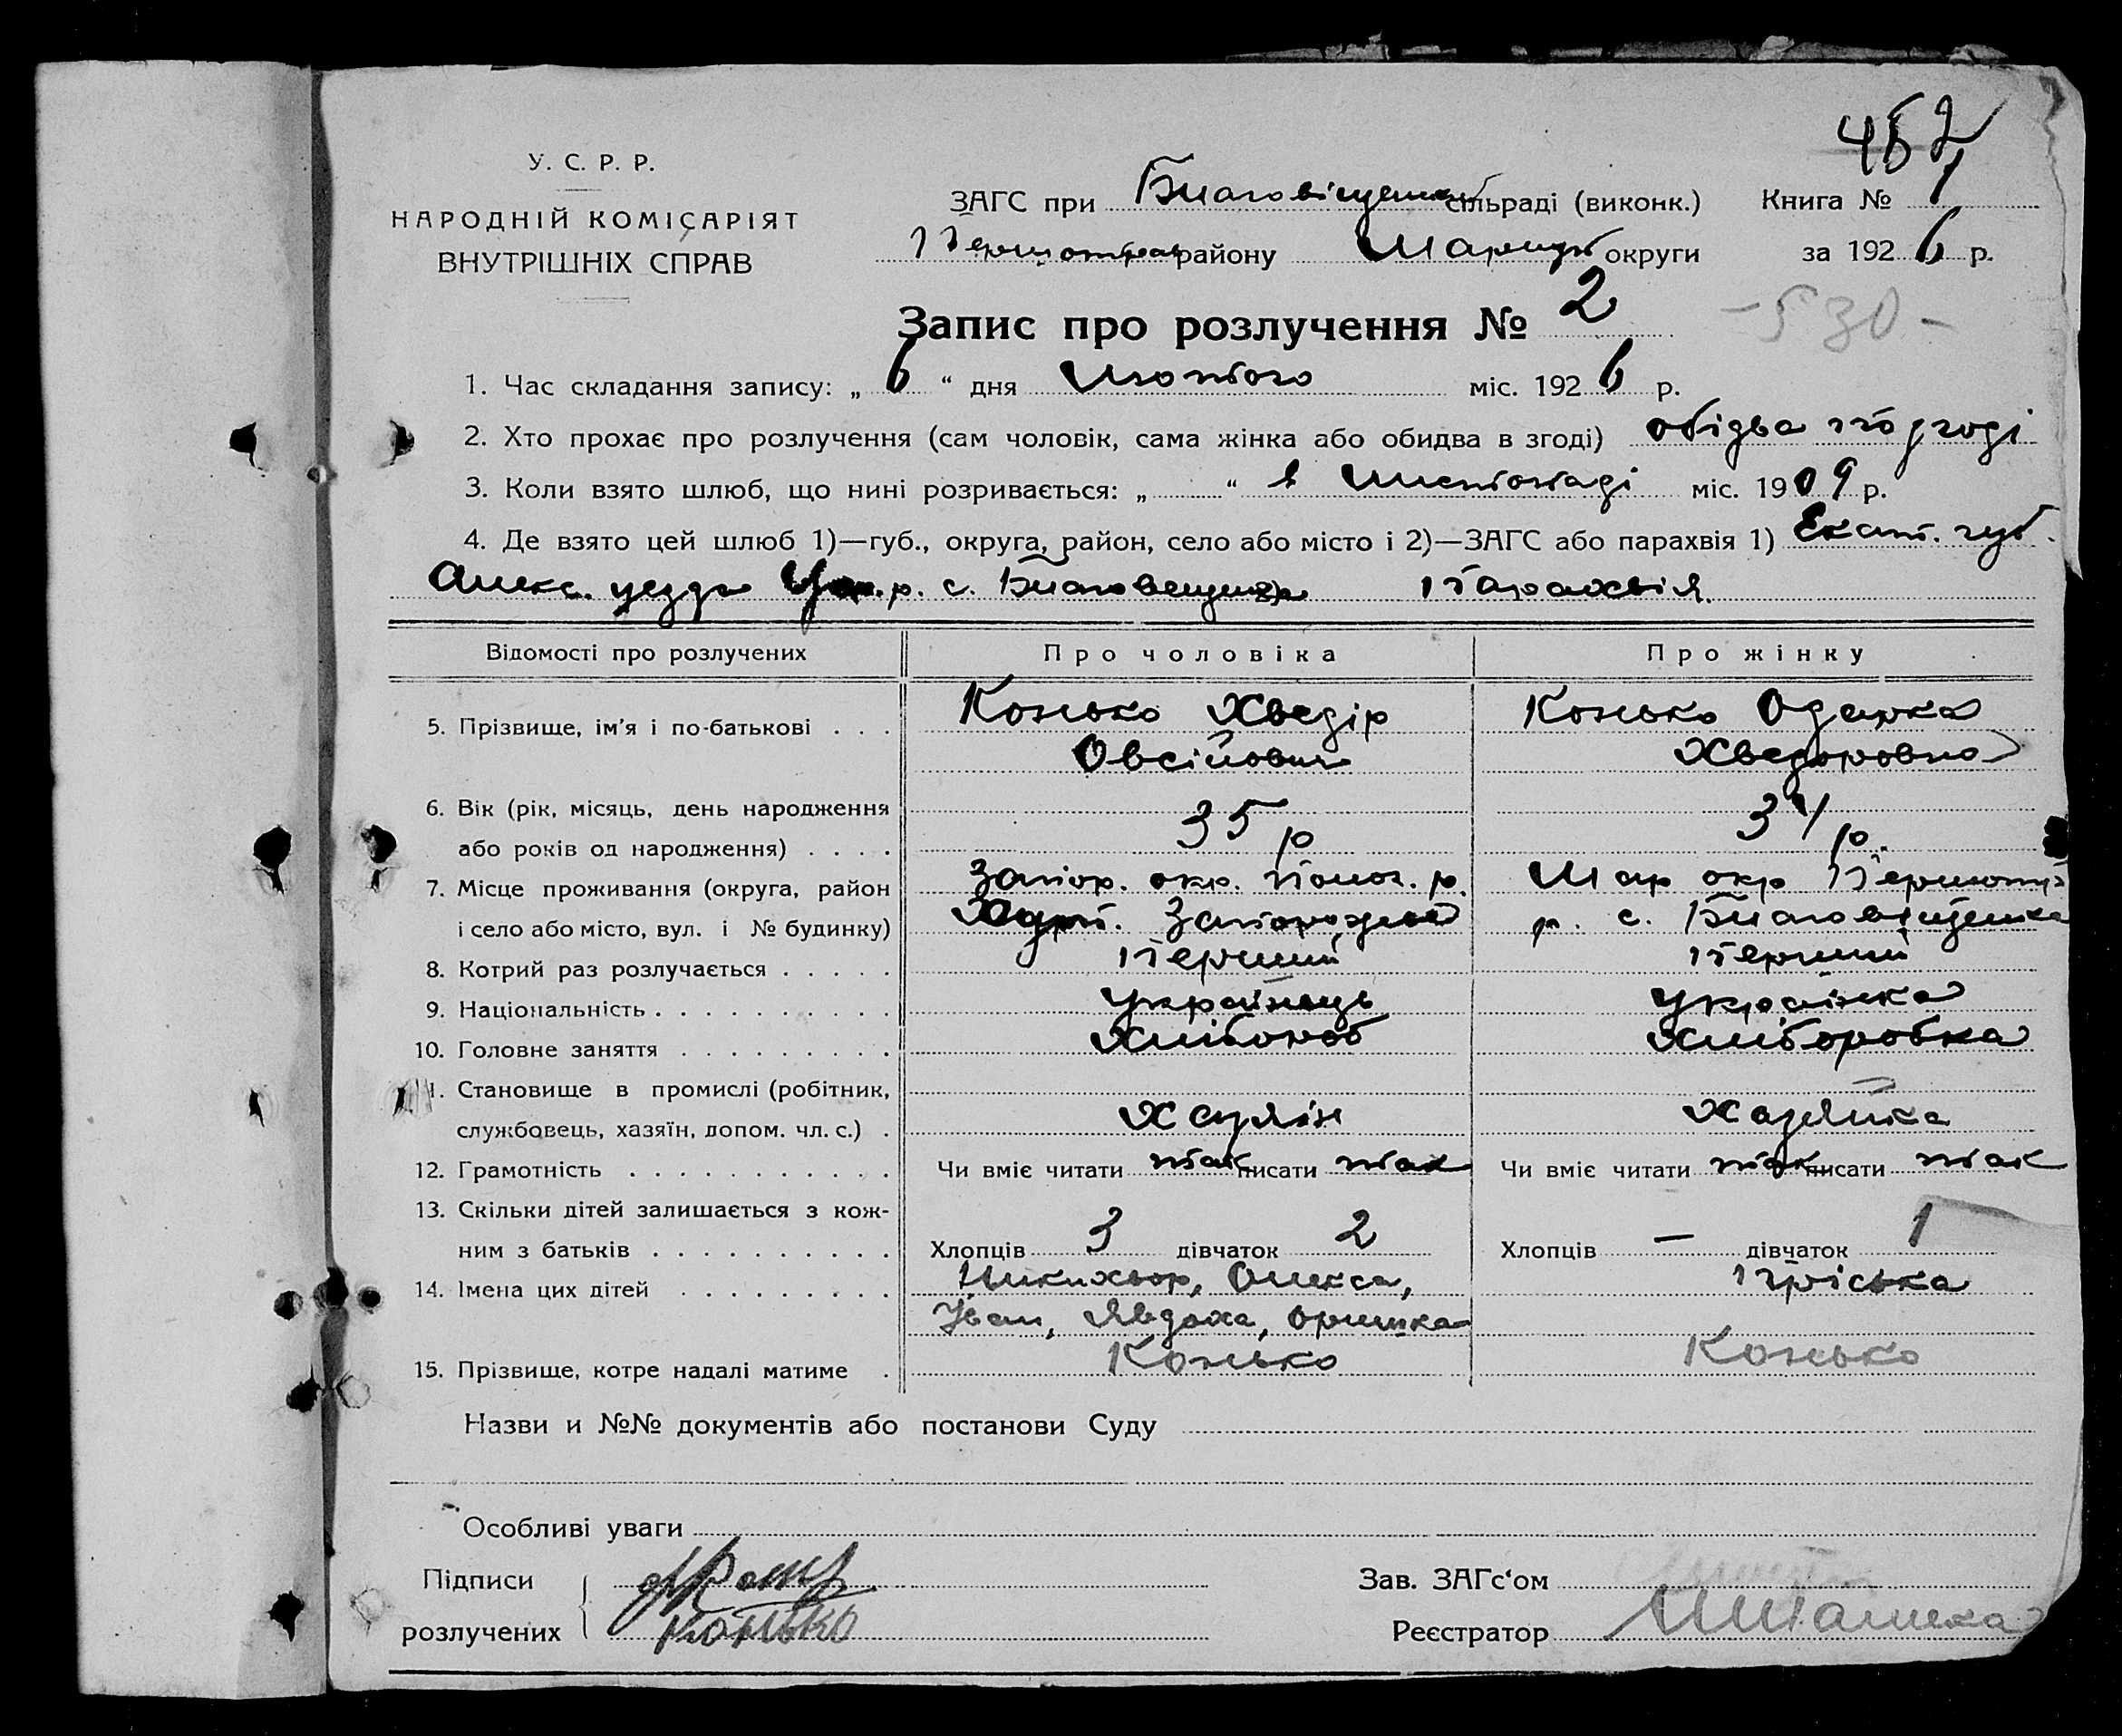 452
У. С. Р. Р.
НАРОДНІЙ КОМІСАРІЯТ
ВНУТРІШНІХ СПРАВ
ЗАГС при Благовіщенс сільраді (виконк.) Книга № 1
Першотрав району Маріуп округи за 1926 р.
Запис про розлучення № 2 -530-
1. Час складання запису: „6“ дня Лютого міс. 1926 р.
2. Хто прохає про розлучення (сам чоловік, сама жінка або обидва в згоді) обідва по згоді
3. Коли взято шлюб, що нині розривається: „ “ в Листопаді міс. 1909 р.
4. Де взято цей шлюб 1)—губ., округа, район, село або місто і 2)—ЗАГС або парахвія 1) Екат. губ.
Алекс. уезда р. с. Благовещенка 2) Парахвія.
Відомості про розлучених Про чоловіка Про жінку
5. Прізвище, ім'я і по-батькові . . . Конько Хведір Конько Одарка
Овсійович Хведоровна
6. Вік (рік, місяць, день народження
або років од народження) . . . . 35 р 34 р.
7. Місце проживання (округа, район Запор. окр. Полог. р. Мар окр Першотр
і село або місто, вул. і № будинку) Запорожье р. с. Благовіщенка
8. Котрий раз розлучається . . . . . Перший Перший
9. Національність . . . . . . . . . . Українець Українка
10. Головне заняття . . . . . . . . . Хлібороб Хліборобка
11. Становище в промислі (робітник,
службовець, хазяїн, допом. чл. с.) . Хазяїн Хазяйка
12. Грамотність . . . . . . . . . . . Чи вміє читати так писати так Чи вміє читати так писати так
13. Скільки дітей залишається з кож-
ним з батьків . . . . . . . . . . Хлопців 3 дівчаток 2 Хлопців — дівчаток 1
14. Імена цих дітей . . . . . . . . . Никихвор, Олекса, Пріська
Іван, Явдоха, Оришка
15. Прізвище, котре надалі матиме . Конько Конько
Назви и №№ документів або постанови Суду
Особливі уваги
Підписи Зав. ЗАГс‘ом
розлучених Конько Реєстратор